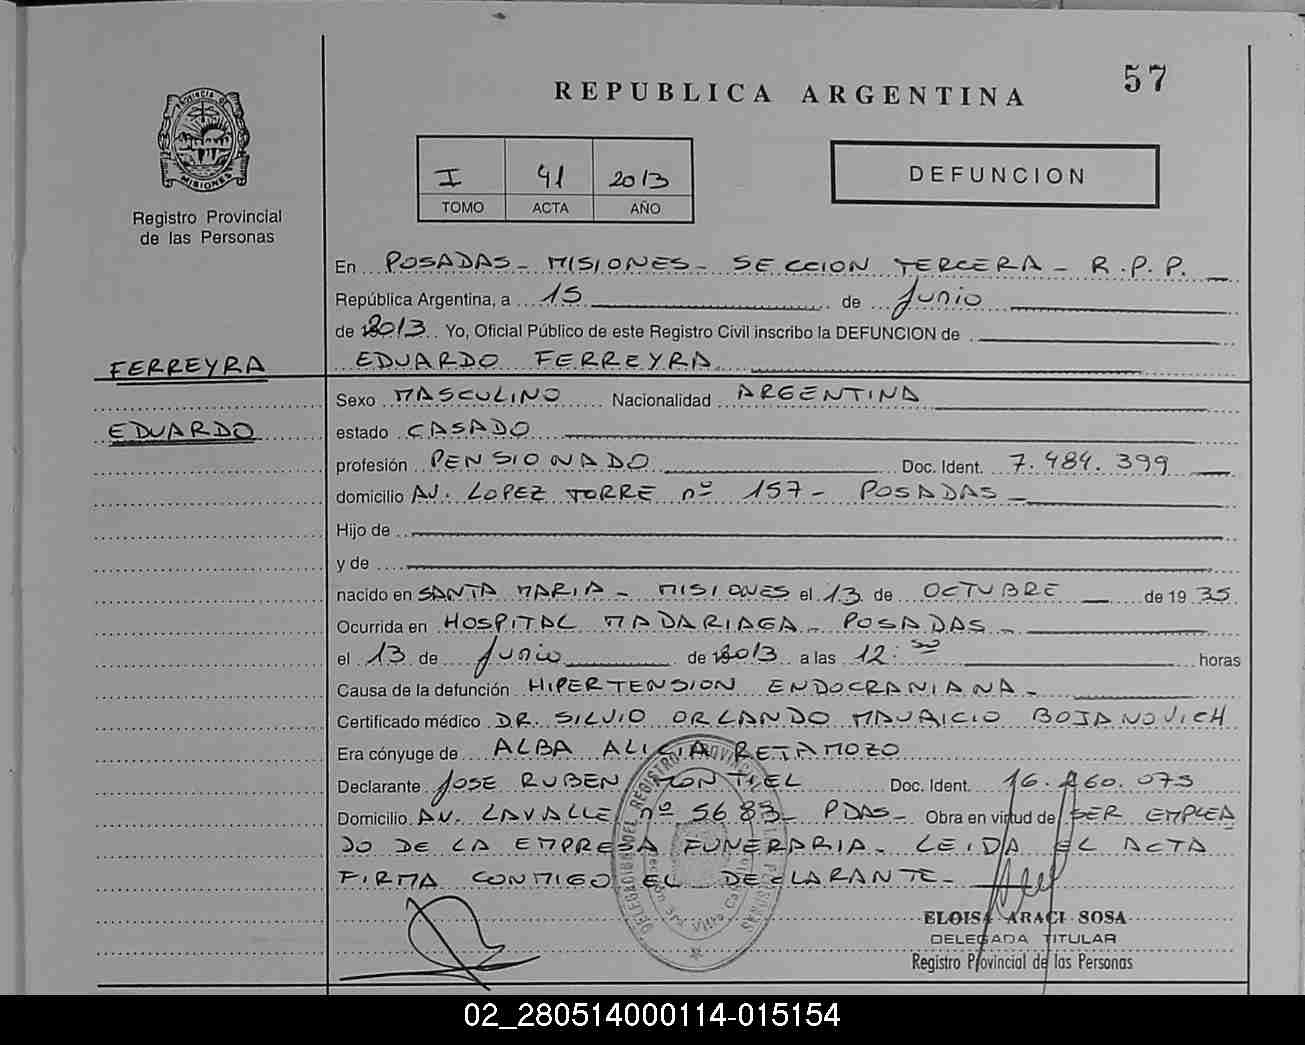 57
REPUBLICA ARGENTINA
PROVINCIA DE
MISIONES
Registro Provincial
de las Personas
I 41 2013
TOMO ACTA AÑO
DEFUNCION
En POSADAS - MISIONES - SECCION TERCERA - R.P.P.
República Argentina, a 15 de Junio
de 2013 Yo, Oficial Público de este Registro Civil inscribo la DEFUNCION de
FERREYRA EDUARDO FERREYRA
Sexo MASCULINO Nacionalidad ARGENTINA
EDUARDO estado CASADO
profesión PENSIONADO Doc. Ident. 7.484.399
domicilio AV. LOPEZ TORRE nº 157 - POSADAS -
Hijo de
y de
nacido en SANTA MARIA - MISIONES el 13 de OCTUBRE de 1935
Ocurrida en HOSPITAL MADARIAGA - POSADAS -
el 13 de Junio de 2013 a las 12:30 horas
Causa de la defunción HIPERTENSION ENDOCRANIANA -
Certificado médico DR. SILVIO ORLANDO MAURICIO BOJANOVICH
Era cónyuge de ALBA ALICIA RETAMOZO
Declarante JOSE RUBEN MONTIEL Doc. Ident. 16.  .073
Domicilio AV. LAVALLE nº 5683 - PDAS - Obra en virtud de SER EMPLEA
DO DE LA EMPRESA FUNERARIA - LEIDA EL ACTA
FIRMA CONMIGO EL DECLARANTE -
DELEGACION DEL REGISTRO PROVINCIAL PERSONAS
ELOISA ARACI SOSA
DELEGADA TITULAR
Registro Provincial de las Personas
02_280514000114-015154